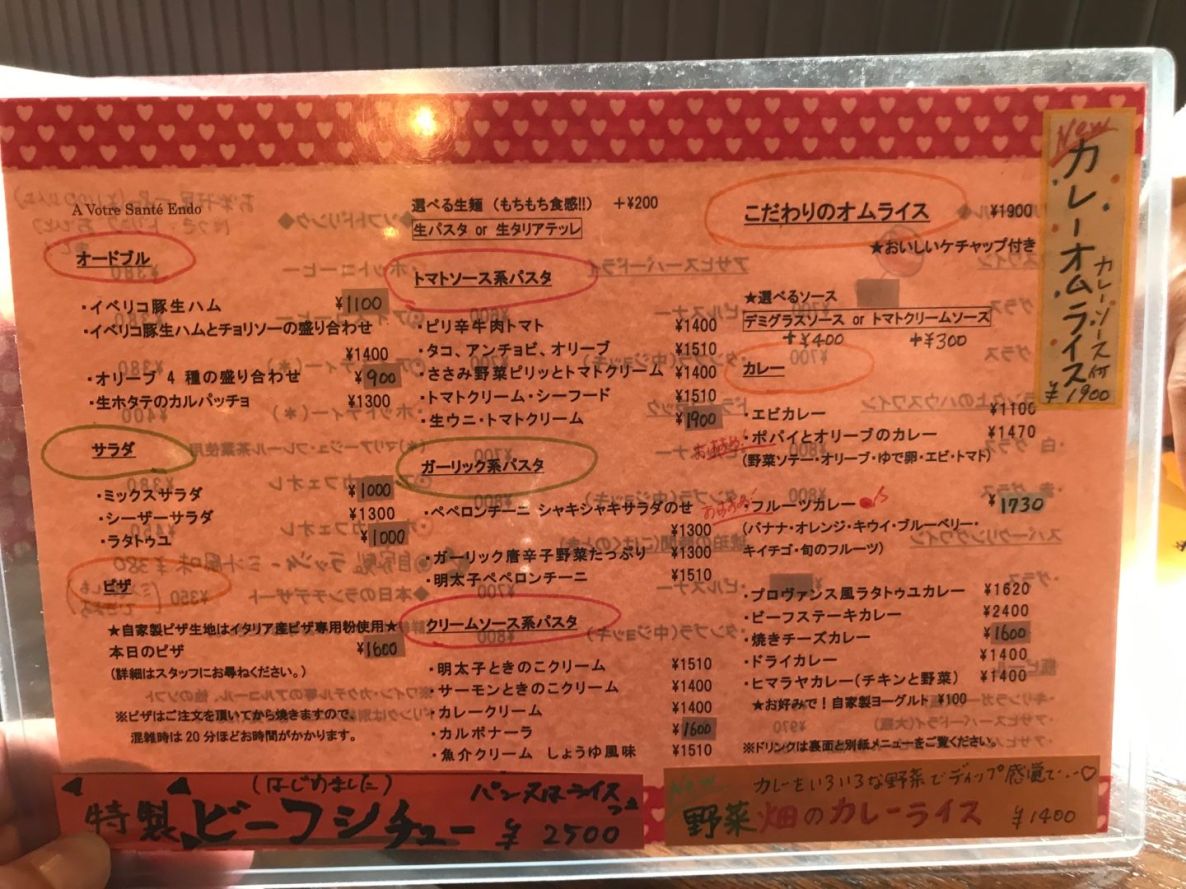 A Votre Santé Endo
オードブル
・イベリコ豚生ハム ¥1100
・イベリコ豚生ハムとチョリソーの盛り合わせ
¥1400
・オリーブ 4 種の盛り合わせ ¥900
・生ホタテのカルパッチョ ¥1300
サラダ
・ミックスサラダ ¥1000
・シーザーサラダ ¥1300
・ラタトゥユ ¥1000
ピザ
★自家製ピザ生地はイタリア産ピザ専用粉使用★
本日のピザ ¥1600
(詳細はスタッフにお尋ねください。)
※ピザはご注文を頂いてから焼きますので、
混雑時は 20 分ほどお時間がかかります。
選べる生麺 (もちもち食感!!) +¥200
生パスタ or 生タリアテッレ
トマトソース系パスタ
・ピリ辛牛肉トマト ¥1400
・タコ、アンチョビ、オリーブ ¥1510
・ささみ野菜ピリッとトマトクリーム ¥1400
・トマトクリーム・シーフード ¥1510
・生ウニ・トマトクリーム ¥1900
ガーリック系パスタ
・ペペロンチーニ シャキシャキサラダのせ
¥1300
・ガーリック唐辛子野菜たっぷり ¥1300
・明太子ペペロンチーニ ¥1510
クリームソース系パスタ
・明太子ときのこクリーム ¥1510
・サーモンときのこクリーム ¥1400
・カレークリーム ¥1400
・カルボナーラ ¥1600
・魚介クリーム しょうゆ風味 ¥1510
こだわりのオムライス ¥1900
★おいしいケチャップ付き
★選べるソース
デミグラスソース or トマトクリームソース
+¥400 +¥300
カレー
・エビカレー ¥1100
・ポパイとオリーブのカレー ¥1470
(野菜ソテー・オリーブ・ゆで卵・エビ・トマト)
・フルーツカレー ¥1730
(バナナ・オレンジ・キウイ・ブルーベリー・
キイチゴ・旬のフルーツ)
・プロヴァンス風ラタトゥユカレー ¥1620
・ビーフステーキカレー ¥2400
・焼きチーズカレー ¥1600
・ドライカレー ¥1400
・ヒマラヤカレー(チキンと野菜) ¥1400
★お好みで!自家製ヨーグルト ¥100
※ドリンクは裏面と別紙メニューをご覧ください。
New
カレーオムライス
カレーソース付
¥1900
(はじめました)
特製ビーフシチュー
パン又はライスつき
¥2500
New
カレーをいろいろな野菜でディップ感覚で…♡
野菜畑のカレーライス ¥1400